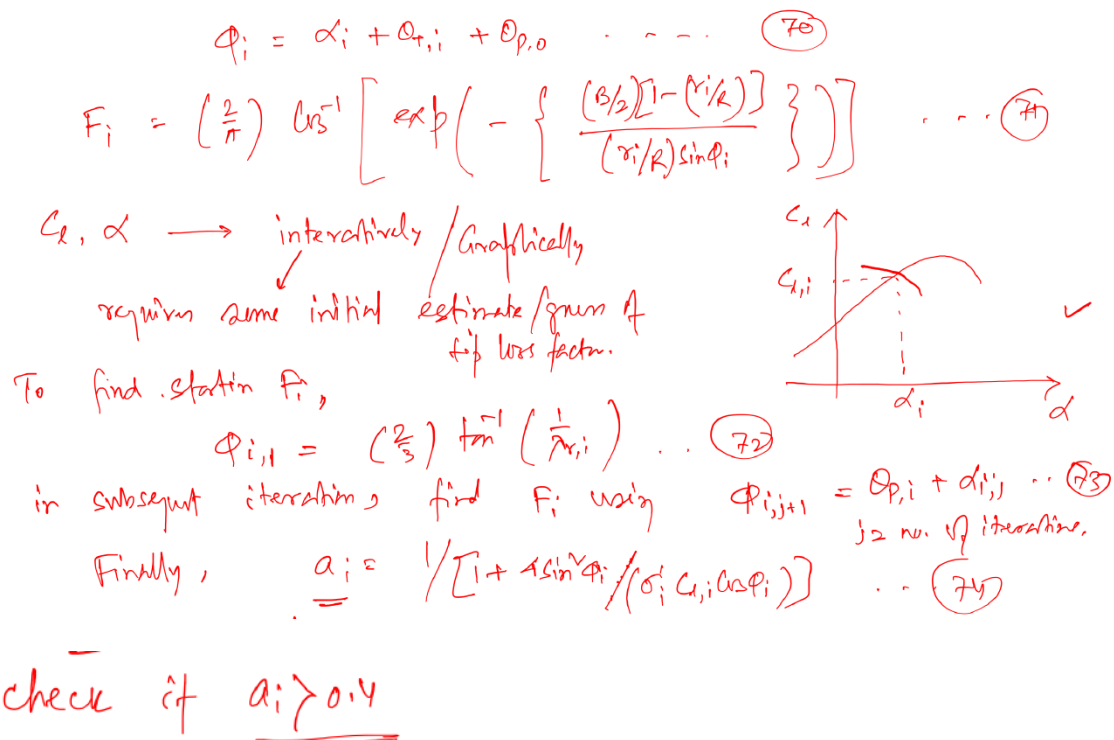 φi = αi + θT,i + θp,0 . . . . . (70)
Fi = (2/π) cos⁻¹ [ exp( - { (B/2)[1-(ri/R)] / (ri/R) sinφi } ) ] . . . (71)
Cl, α → interatively / Graphically
requires some initial estimate/guess of
tip loss factor.
Cl
Cl,i
αi
α
✓
To find startin Fi,
φi,1 = (2/3) tan⁻¹ (1/λr,i) . . (72)
in subsequt iterations, find Fi using φi,j+1 = θp,i + αi,j . . (73)
j = no. of iterations.
Finally, ai = 1/[1 + 4sin²φi/(σ'i Cl,i cosφi)] . . (74)
check if ai > 0.4